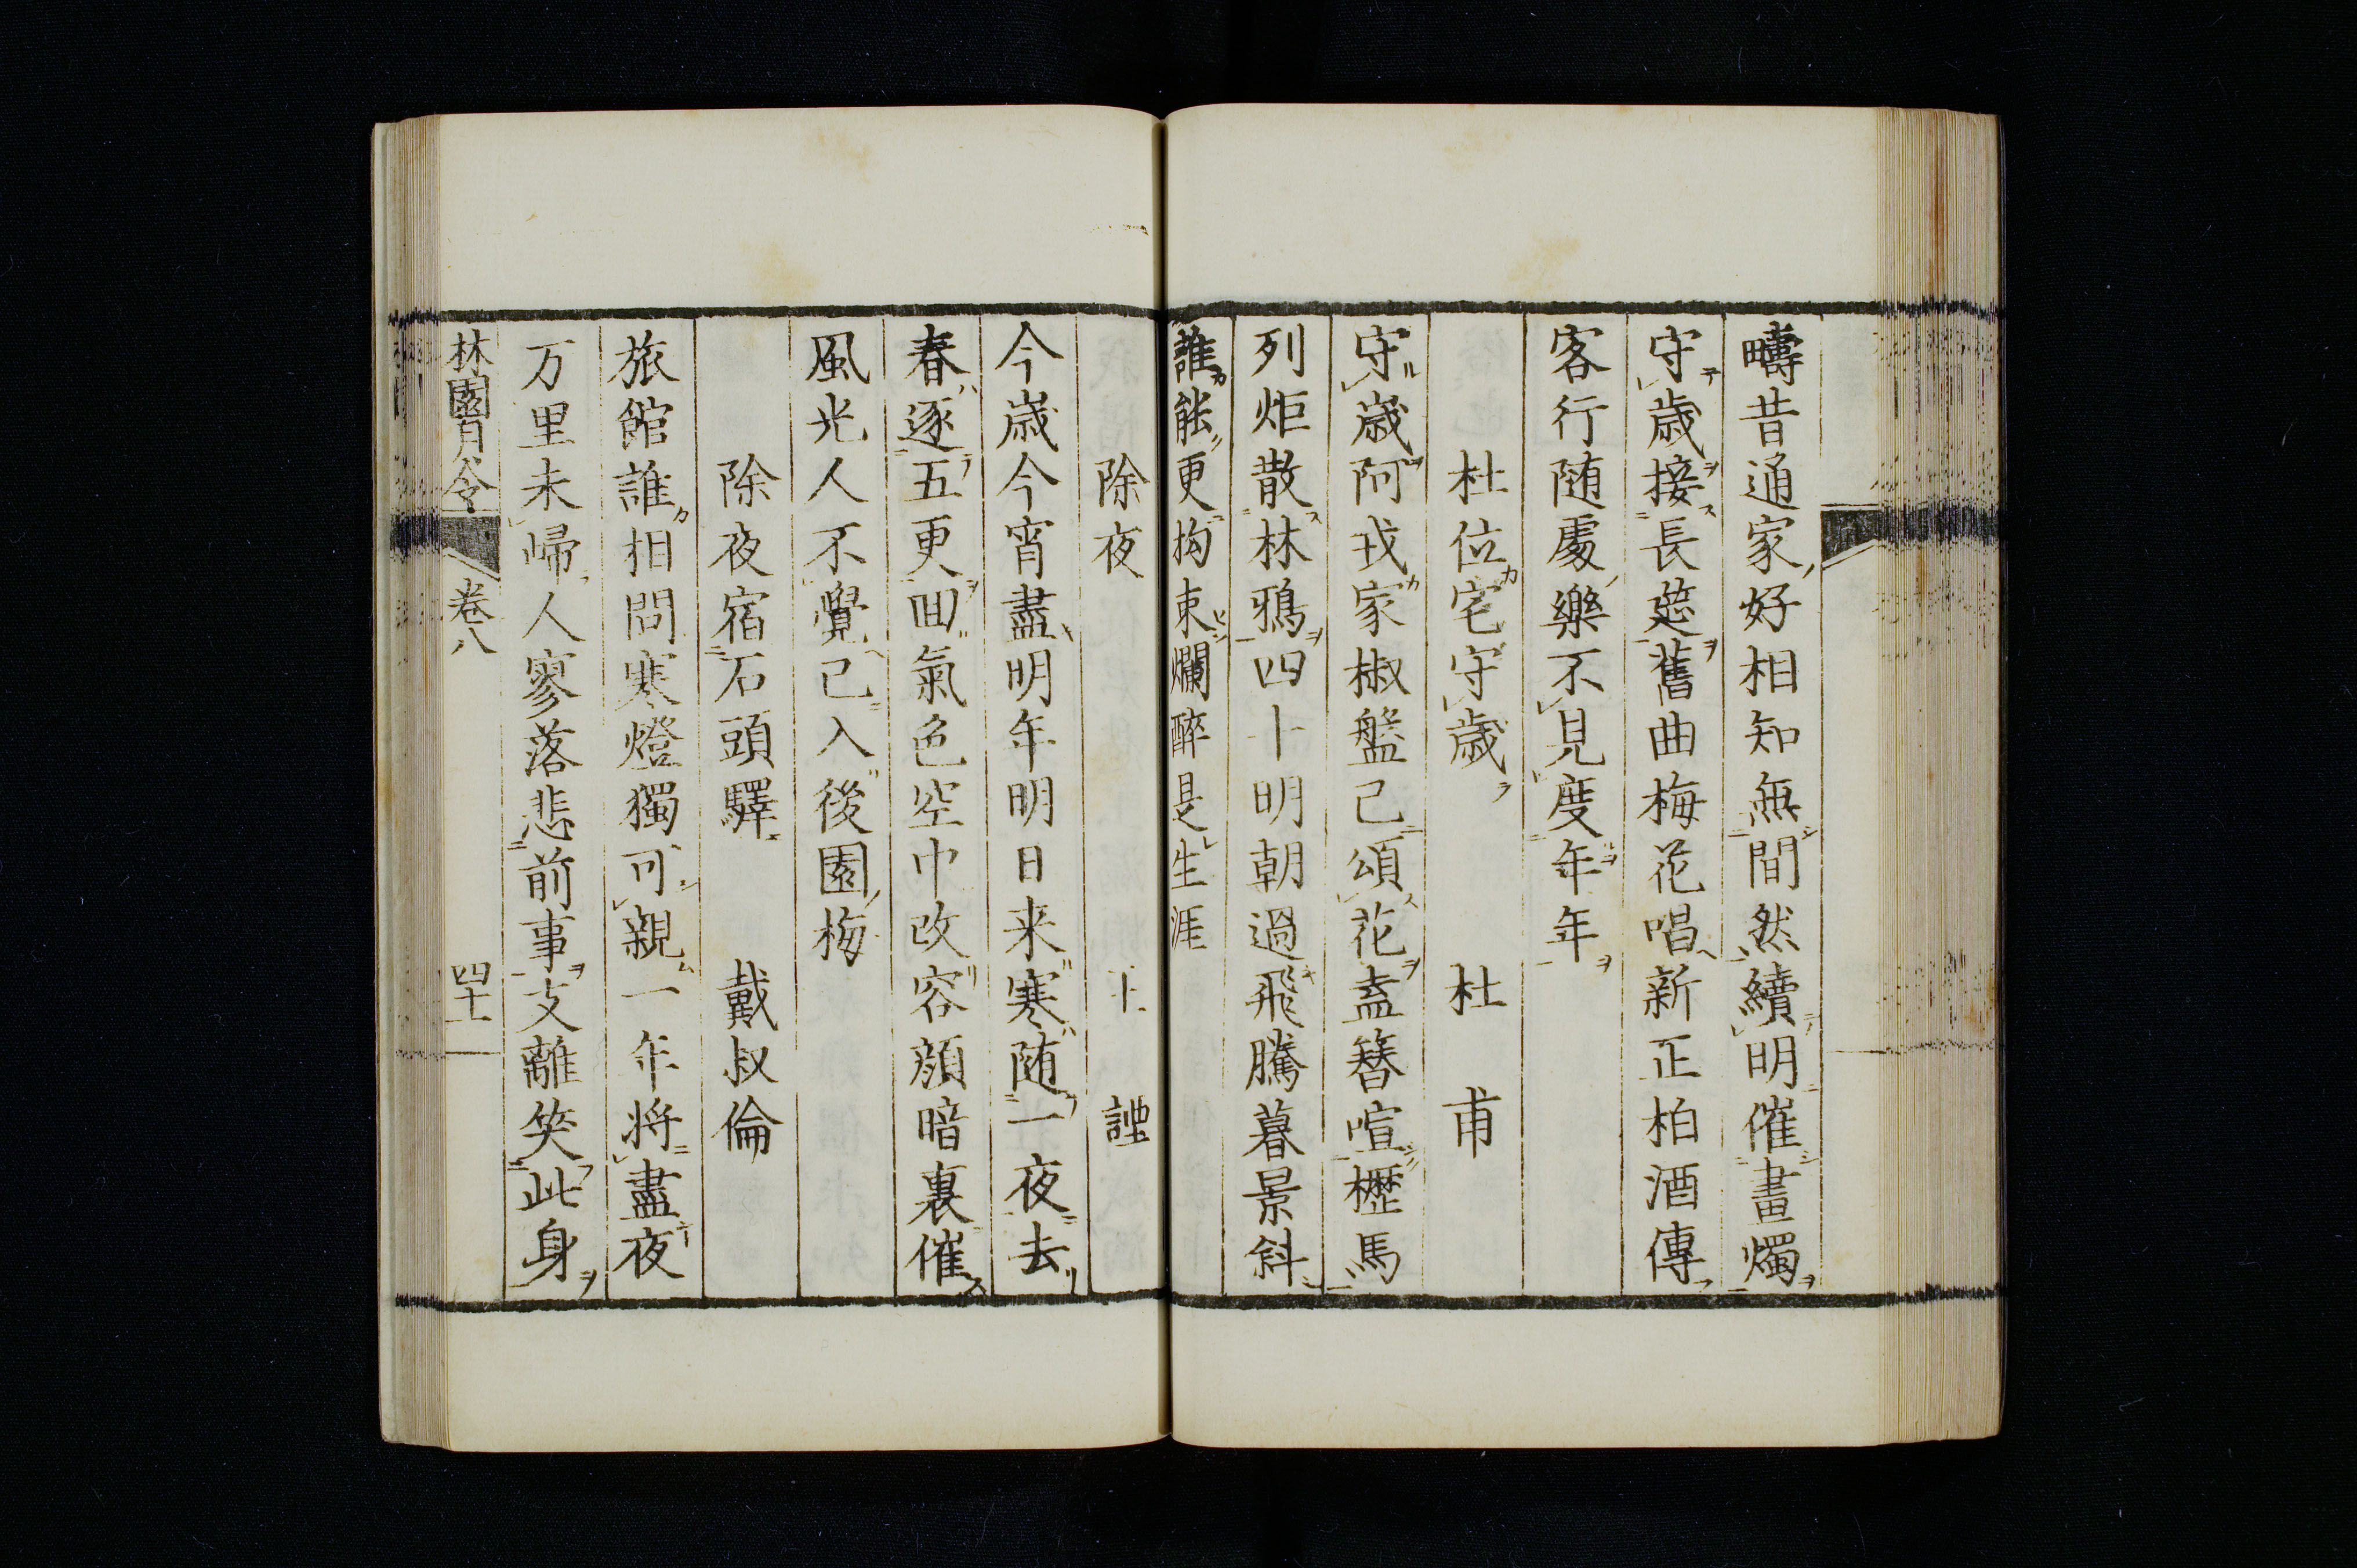 疇昔通家好相知無間然續明催畫燭
守歳接長筵舊曲梅花唱新正柏酒傳
客行随處樂不見度年年
杜位宅守歳　杜甫
守歳阿戎家椒盤已頌花盍簪喧櫪馬
列炬散林鴉四十明朝過飛騰暮景斜
誰能更拘束爛醉是生涯
除夜　王諲
今歳今宵盡明年明日来寒随一夜去
春逐五更回氣色空中改容顔暗裏催
風光人不覺已入後園梅
除夜宿石頭驛　戴叔倫
旅館誰相問寒燈獨可親一年将盡夜
万里未歸人寥落悲前事支離笑此身
林園月令　卷八　四十一